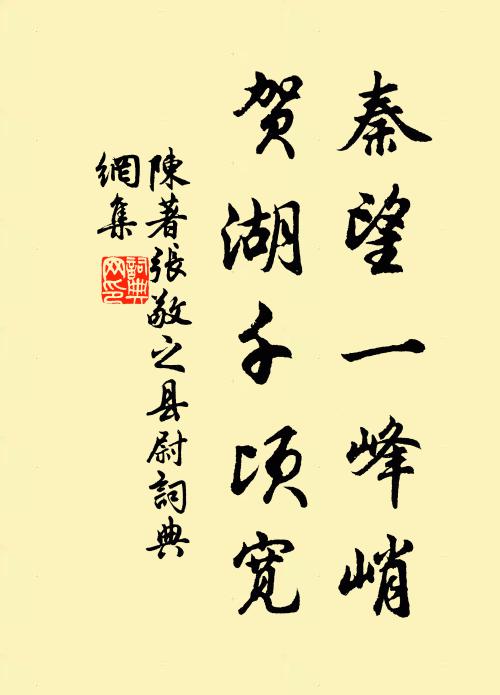 秦望一峰峭
贺湖千顷宽
陳著張敬之县尉詞典
網集
詞典
网印